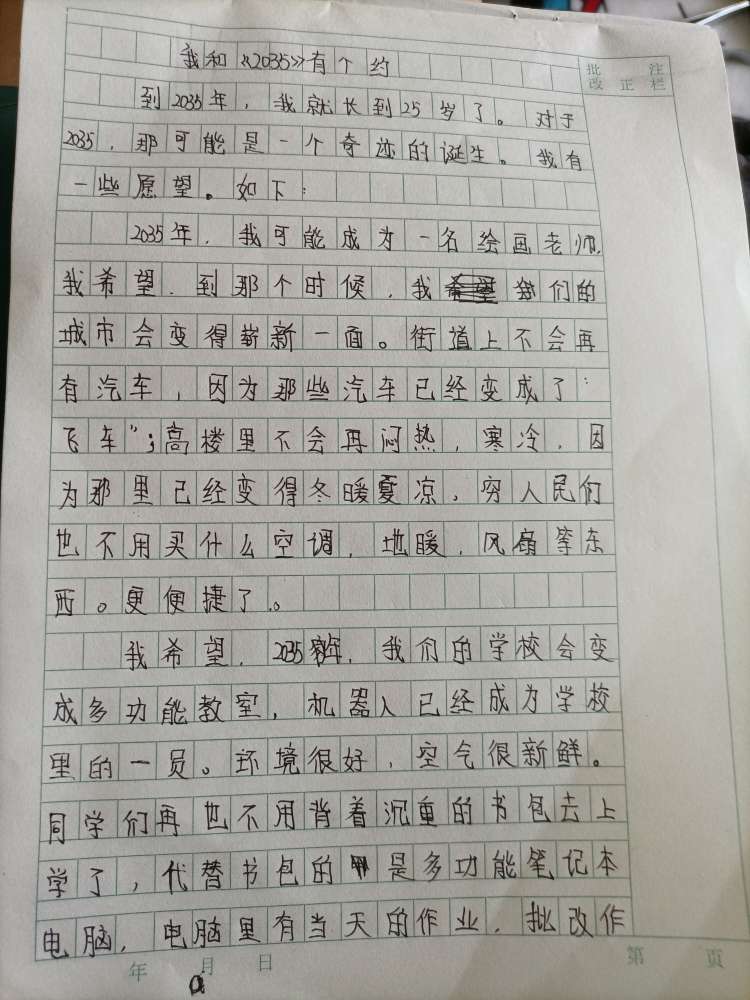 我和《2035》有个约
批 注
改 正 栏
到2035年，我就长到25岁了。对于
2035，那可能是一个奇迹的诞生。我有
一些愿望。如下：
2035年，我可能成为一名绘画老师，
我希望，到那个时候，我们的
城市会变得崭新一面。街道上不会再
有汽车，因为那些汽车已经变成了“
飞车”；高楼里不会再闷热，寒冷，因
为那里已经变得冬暖夏凉，穷人民们
也不用买什么空调，地暖，风扇等东
西。更便捷了。
我希望，2035年，我们的学校会变
成多功能教室，机器人已经成为学校
里的一员。环境很好，空气很新鲜。
同学们再也不用背着沉重的书包去上
学了，代替书包的是多功能笔记本
电脑，电脑里有当天的作业，批改作
年 月 日
第 页